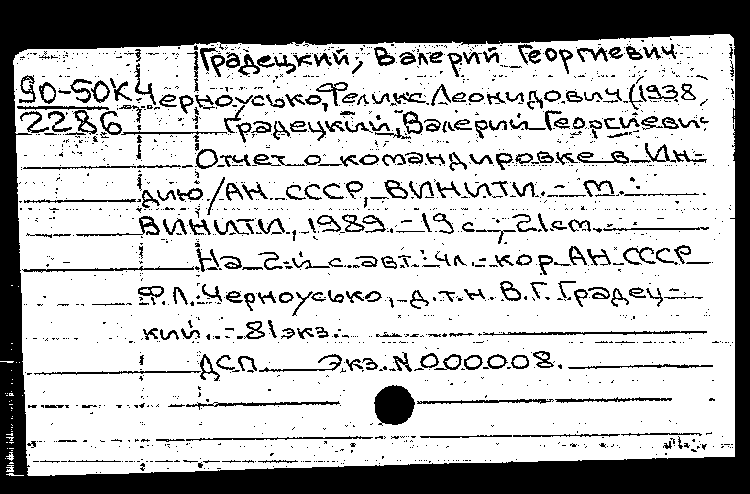 Градецкий, Валерий Георгиевич
90-50К Черноусько, Феликс Леонидович (1938
2286 Градецкий, Валерий Георгиеви-
Отчет о командировке в Ин-
дию / АН СССР, ВИНИТИ. - М.:
ВИНИТИ, 1989. - 19 с ; 21 см. -
На 2-й с авт.: чл.-кор АН СССР
Ф.Л. Черноусько, д.т.н. В.Г. Градец-
кий. - 81 экз.
ДСП Экз. N 000008.